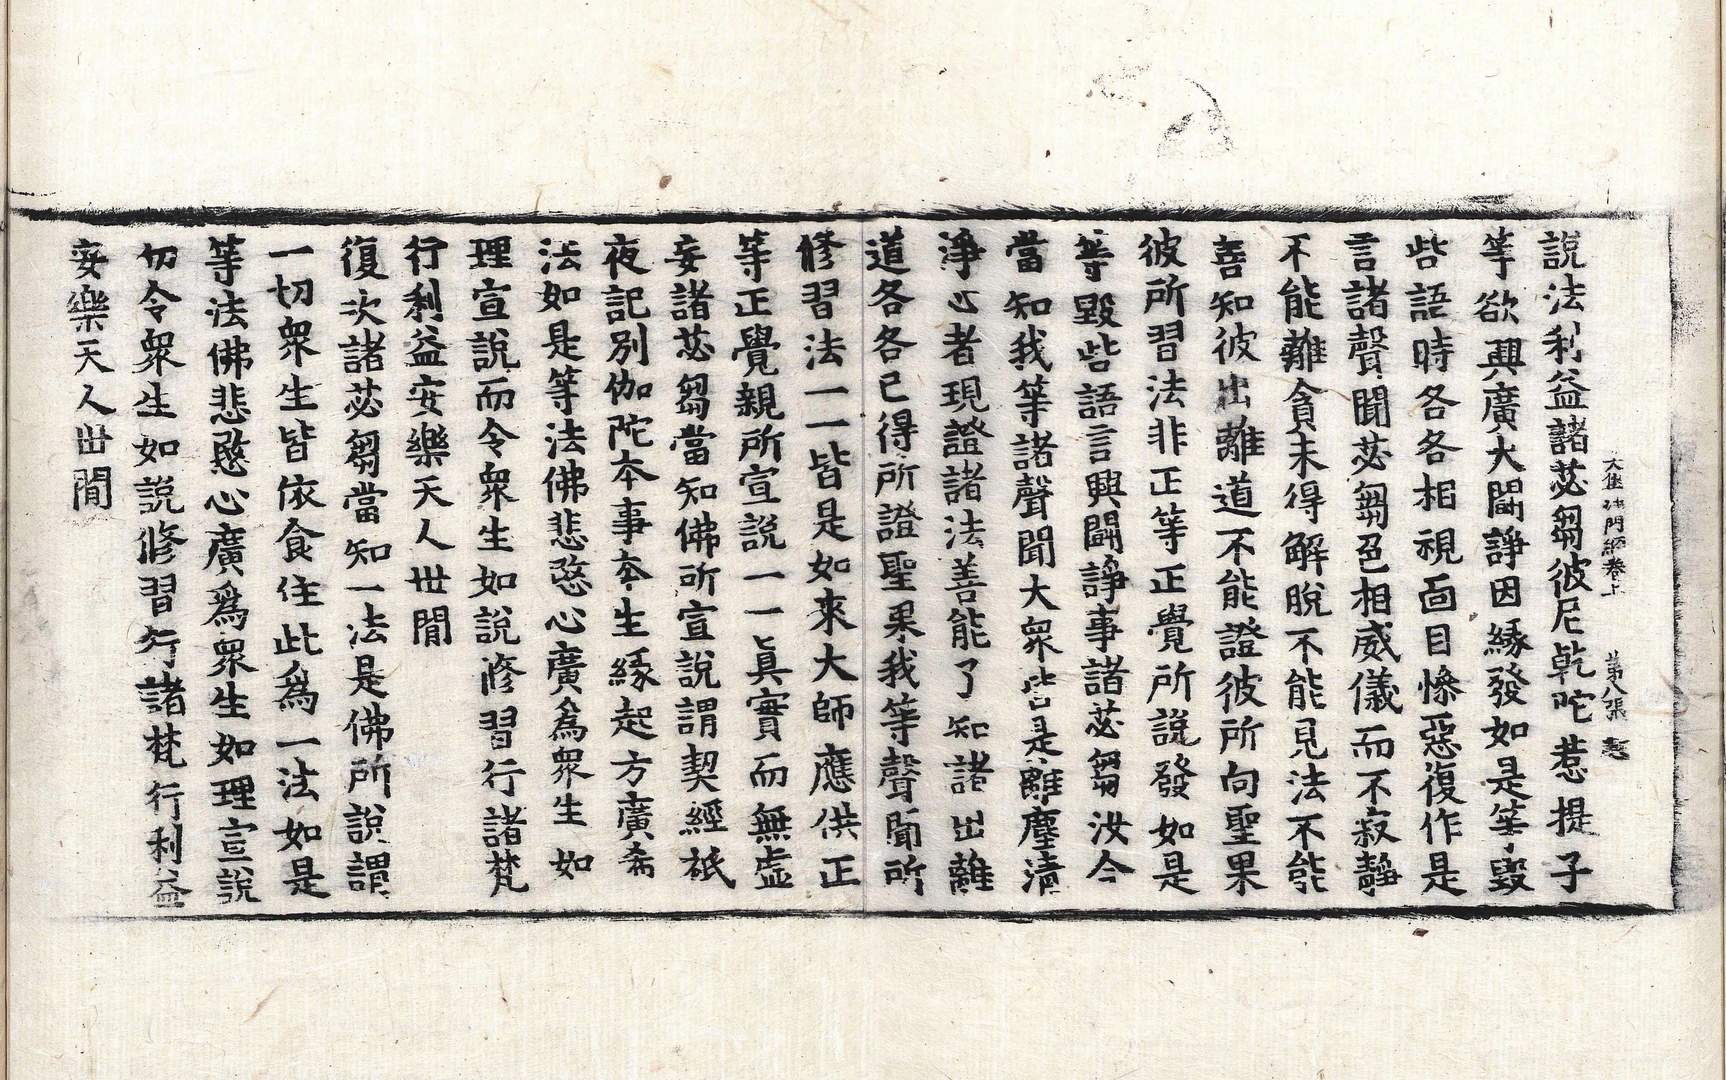 大集法門經卷上 第八張
說法利益諸苾芻彼尼乾陀惹提子
等欲興廣大鬪諍因緣發如是等毀
呰語時各各相視面目慘惡復作是
言諸聲聞苾芻色相威儀而不寂靜
不能離貪未得解脫不能見法不能
善知彼出離道不能證彼所向聖果
彼所習法非正等正覺所說發如是
等毀呰語言興鬪諍事諸苾芻汝今
當知我等諸聲聞大眾皆是離塵清
淨心者現證諸法善能了知諸出離
道各各已得所證聖果我等聲聞所
修習法一一皆是如來大師應供正
等正覺親所宣說一一真實而無虛
妄諸苾芻當知佛所宣說謂契經祇
夜記別伽陀本事本生緣起方廣希
法如是等法佛悲愍心廣為眾生如
理宣說而令眾生如說修習行諸梵
行利益安樂天人世間
復次諸苾芻當知一法是佛所說謂
一切眾生皆依食住此為一法如是
等法佛悲愍心廣為眾生如理宣說
切令眾生如說修習行諸梵行利益
安樂天人世間